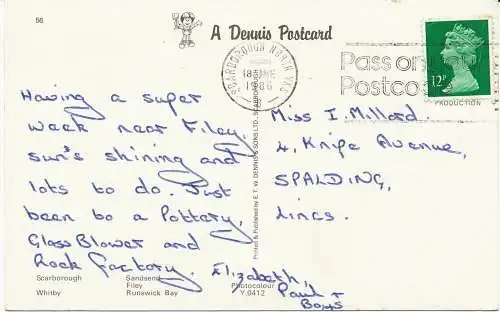 56
A Dennis Postcard
SCARBOROUGH NORTH YKS
18 JNE
1986
Pass on your
Postcode
12P
PRODUCTION
Having a super
week near Filey,
sun's shining and
lots to do. Just
been to a Pottery,
Glass Blower and
Rock Factory.
Elizabeth,
Paul +
Boys
Miss I. Millard.
4, Knipe Avenue,
SPALDING,
Lincs.
Printed & Published by E. T. W. DENNIS & SONS LTD., SCARBOROUGH
Scarborough
Sandsend
Filey
Whitby
Runswick Bay
Photocolour
Y.0412